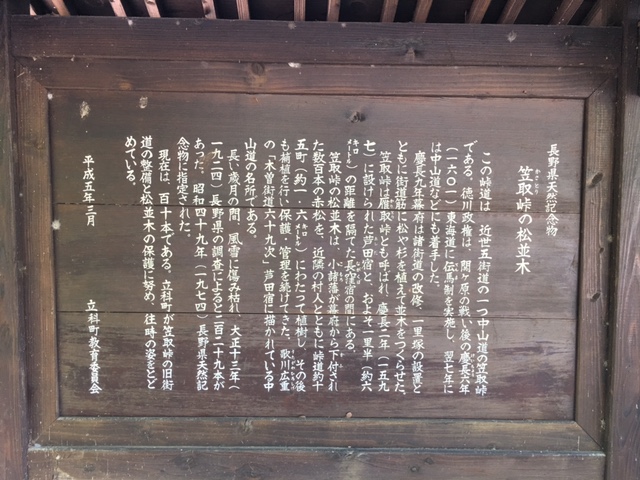 長野県天然記念物
笠取峠の松並木
かさとり
この峠道は、近世五街道の一つ中山道の笠取峠
である。徳川政権は、関ヶ原の戦い後の慶長六年
(一六〇一)東海道に伝馬制を実施し、翌七年に
は中山道などにも着手した。
慶長九年幕府は諸街道の改修、一里塚の設置と
ともに街道筋に松や杉を植えて並木をつくらせた。
笠取峠は雁取峠とも呼ばれ、慶長二年(一五九
七)に設けられた芦田宿と、およそ一里半(約六
キロメートル)の距離を隔てた長窪宿の間にある。
笠取峠の松並木は、小諸藩が幕府から下付され
た数百本の赤松を、近隣の村人とともに峠道約十
五町(約一・六キロメートル)にわたって植樹し、その後
も補植を行い保護・管理を続けてきた。歌川広重
の「木曽街道六十九次」芦田宿に描かれている中
山道の名所である。
長い歳月の間、風雪に傷み枯れ、大正十三年(
一九二四)長野県の調査によると二百二十九本が
あった。昭和四十九年(一九七四)長野県天然記
念物に指定された。
現在は、百十本である。立科町が笠取峠の旧街
道の整備と松並木の保護に努め、往時の姿をとど
めている。
平成五年三月
立科町教育委員会